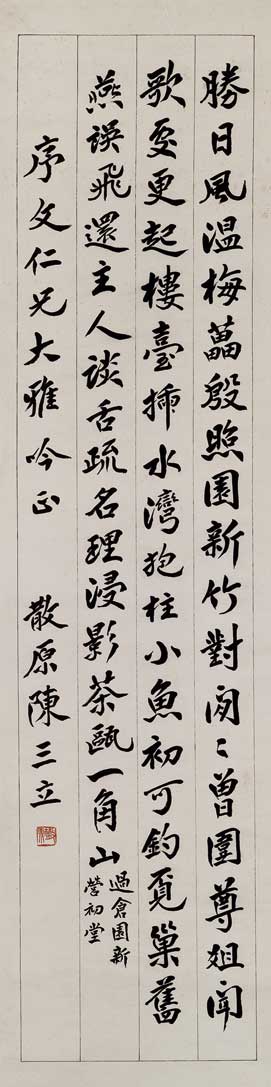 勝日風温梅蕾殷照園新竹對閒〻曾圍尊俎聞
歌處更起樓臺插水灣抱柱小魚初可釣覓巢舊
燕誤飛還主人談舌疏名理浸影茶甌一角山
過倉園新
營初堂
序文仁兄大雅吟正 散原陳三立